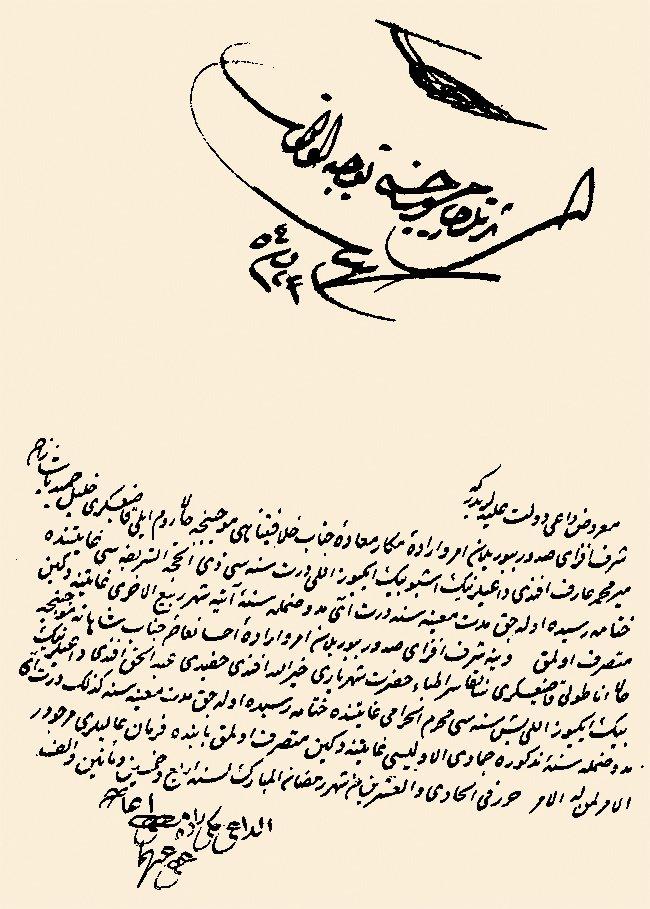 موجبنجه توجیه اولنمق
معروض داعی دولت علیه لریدر که
شرف افزای صدور بیوریلان امر و اراده مکارم معاده جناب خلافتپناهی موجبنجه حالا روم ایلی قاضیعسکری خلیل حمید پاشا زاده
میر محمد عارف افندی داعیلرینك اشبو بیك ایکیوز اللی درت سنه سی ذی الحجة الشریفه سی غایتنده
ختامه رسیده اوله جق مدت معینه سنه درت آی مد و ضمله سنهٔ آتیه شهر ربیع الاخری غایتنه دکین
متصرف اولمق وینه شرف افزای صدور بیوریلان امر و ارادهٔ جناب شاهانه موجبنجه
حالا اناطولی قاضیعسکری سر اطباء حضرت شهریاری خیر الله افندی حفیدی عبد الحق افندی داعیلرینك
بیك ایکیوز اللی بش سنه سی محرم الحرامی غایتنده ختامه رسیده اوله جق مدت معینه سنه کذلك درت آی
مد و ضمله سنهٔ مذکوره جمادی الاولیسی غایتنه دکین متصرف اولمق بابنده فرمان عالیلری مرجودر
الامر لمن له الامر حرر فی الحادی والعشرین من شهر رمضان المبارك لسنه اربع و خمسین و مأتین و الف
الداعی مکی زاده مصطفی عاصم
عفی عنهما